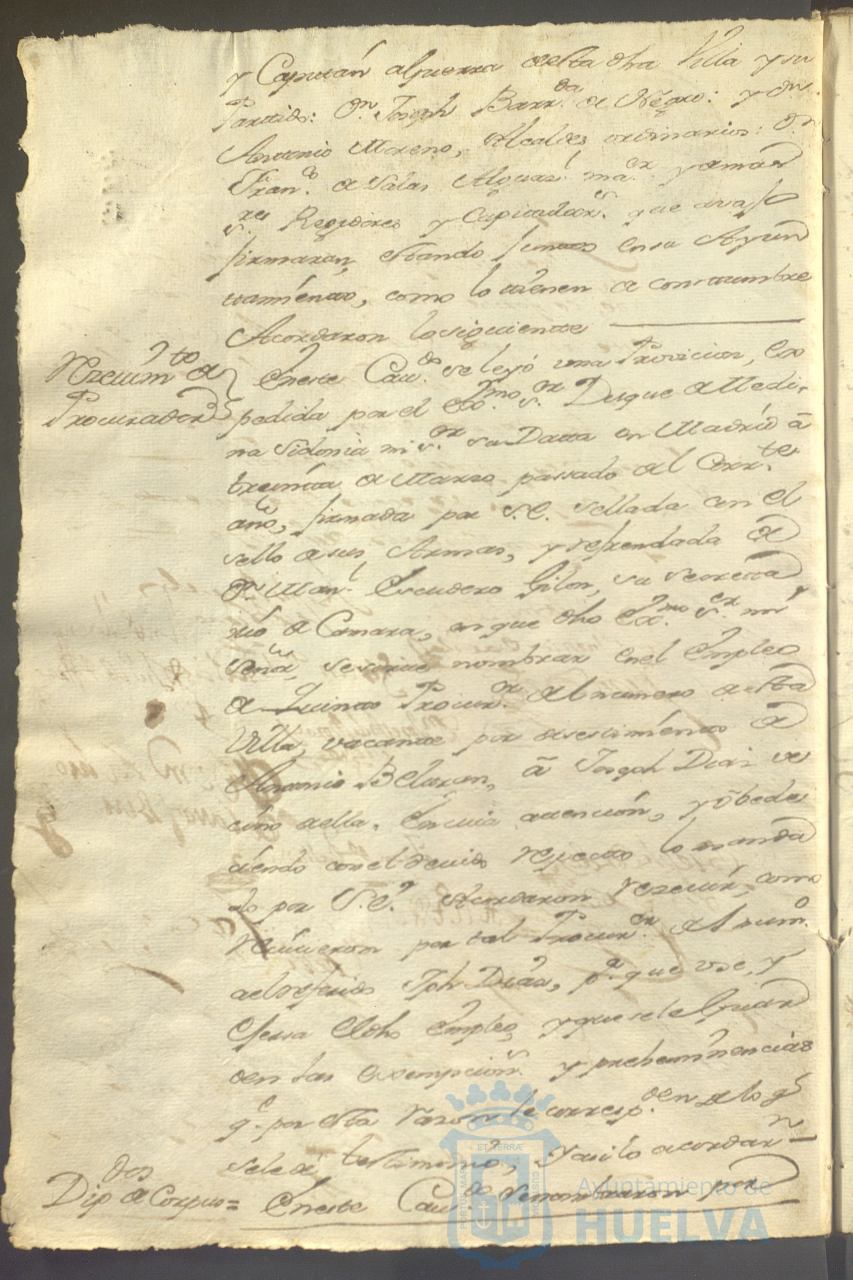 y Capitán aGuerra desta dha Villa y su
Partido: Dn. Joseph Barr.da de Negro: y Dn.
Antonio Moreno, Alcaldes ordinarios: Dn.
Fran.co de Salas Alguaz.l ma.or y demas
Regidores y Capitulares que avajo
firmaran, estando juntos en su Ayun
tamiento, como lo tienen de constumbre
Acordaron lo siguiente
Rezeuim.to de
Procurador
Eneste Cau.do se leyó una Provicion, Ex
pedida por el Ex.mo S.or Duque de Medi-
na Sidonia mi S.or su Datta en Madrid â
treinta de Marzo passado del Corr.te
año, firmada por S.E. sellada con el
sello de sus Armas, y refrendada de
Dn. Man.l Escudero Gilon, su Secretta
rio de Camara, en que dho Ex.mo S.or mi
Señor, se sirve nombrar en el Empleo
de Quinto Procur.or del numero desta
Villa, vacante por desestimiento de
Antonio Beltran, â Joseph Diaz ve
cino della. En cuia attención, y obede
ciendo con el deuido respecto lo manda
do por S.E. Acordaron rezeuir, como
reciuieron por tal Procur.or del num.o
al referido Jph Diaz, p.a que use, y
exersa el dho Empleo, y que se le Guar
den las exempcion.s y prehemínencias
q.e por esta razon le corresp.den de lo q.
se le dé testimonio, y assi lo acordar.n
Dip.dos de Corpus =
Eneste Cau.do se nombraron por
ET TERRÆ
Ayuntamiento de
HUELVA